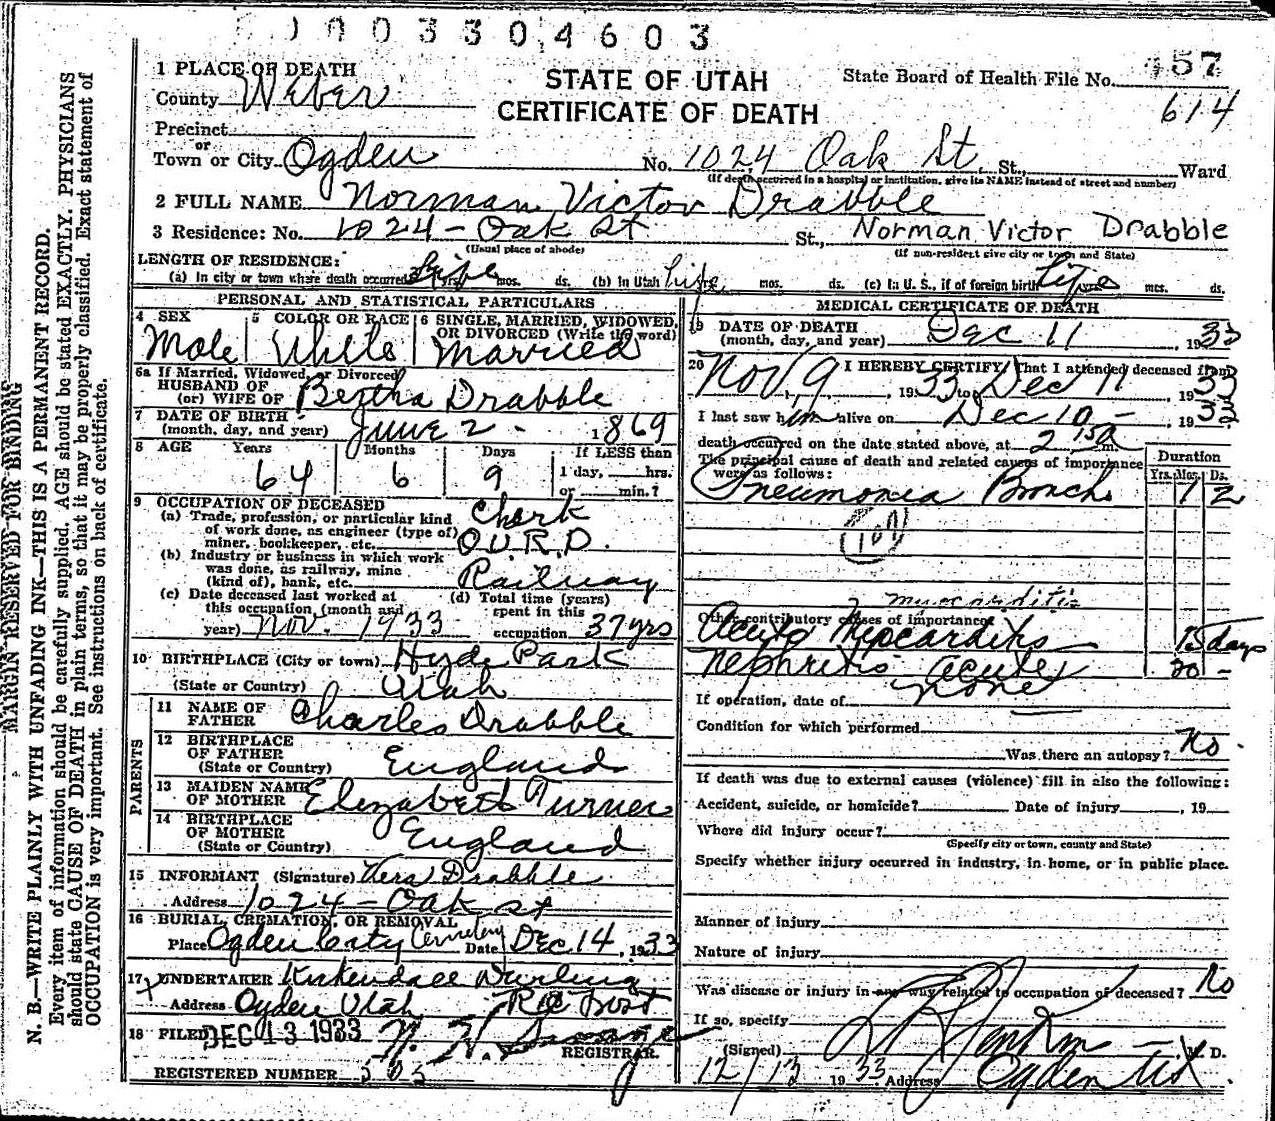 0003304603
STATE OF UTAH
CERTIFICATE OF DEATH
State Board of Health File No. 57
614
1 PLACE OF DEATH
County Weber
Precinct
or
Town or City Ogden No. 1024 Oak St St., Ward
(If death occurred in a hospital or institution, give its NAME instead of street and number)
2 FULL NAME Norman Victor Drabble
3 Residence: No. 1024 - Oak St St., Norman Victor Drabble
(Usual place of abode) (If non-resident give city or town and State)
LENGTH OF RESIDENCE:
(a) In city or town where death occurred Life yrs. mos. ds. (b) In Utah Life mos. ds. (c) In U.S., if of foreign birth Life yrs. mos. ds.
PERSONAL AND STATISTICAL PARTICULARS
4 SEX Male
5 COLOR OR RACE White
6 SINGLE, MARRIED, WIDOWED, OR DIVORCED (Write the word) Married
6a If Married, Widowed, or Divorced
HUSBAND OF
(or) WIFE OF Bertha Drabble
7 DATE OF BIRTH
(month, day, and year) June 2 - 1869
8 AGE Years Months Days If LESS than
64 6 9 1 day, hrs.
or min.?
9 OCCUPATION OF DECEASED
(a) Trade, profession, or particular kind of work done, as engineer (type of) miner, bookkeeper, etc. Clerk
O.U.R.D.
(b) Industry or business in which work was done, as railway, mine (kind of), bank, etc. Railway
(c) Date deceased last worked at this occupation, (month and year) Nov. 1933
(d) Total time (years) spent in this occupation 37 yrs
10 BIRTHPLACE (City or town) Hyde Park
(State or Country) Utah
PARENTS
11 NAME OF FATHER Charles Drabble
12 BIRTHPLACE OF FATHER
(State or Country) England
13 MAIDEN NAME OF MOTHER Elizabeth Turner
14 BIRTHPLACE OF MOTHER
(State or Country) England
15 INFORMANT (Signature) Vera Drabble
Address 1024 - Oak St
16 BURIAL, CREMATION, OR REMOVAL
Place Ogden City Cemetery Date Dec. 14, 1933
17 UNDERTAKER Kirkendall Darling
Address Ogden Utah
18 FILED DEC 13 1933
REGISTRAR.
REGISTERED NUMBER 565
MEDICAL CERTIFICATE OF DEATH
19 DATE OF DEATH
(month, day, and year) Dec 11, 1933
20 I HEREBY CERTIFY, That I attended deceased from
Nov 9, 1933 to Dec 11, 1933
I last saw him alive on Dec 10 -, 1933
death occurred on the date stated above, at 2 15a m.
The principal cause of death and related causes of importance were as follows:
Duration
Yrs. Mos. Ds.
Pneumonia Bronch. 12
107
myocarditis
Other contributory causes of importance
Acute Myocarditis 15 days
Nephritis acute 20 -
If operation, date of none
Condition for which performed
Was there an autopsy? No.
If death was due to external causes (violence) fill in also the following:
Accident, suicide, or homicide? Date of injury, 19
Where did injury occur?
(Specify city or town, county and State)
Specify whether injury occurred in industry, in home, or in public place.
Manner of injury
Nature of injury
Was disease or injury in any way related to occupation of deceased? No
If so, specify
(Signed) M. D.
12/13 1933 Address Ogden Ut.
MARGIN RESERVED FOR BINDING
N. B.—WRITE PLAINLY WITH UNFADING INK—THIS IS A PERMANENT RECORD.
Every item of information should be carefully supplied. AGE should be stated EXACTLY. PHYSICIANS
should state CAUSE OF DEATH in plain terms, so that it may be properly classified. Exact statement of
OCCUPATION is very important. See instructions on back of certificate.